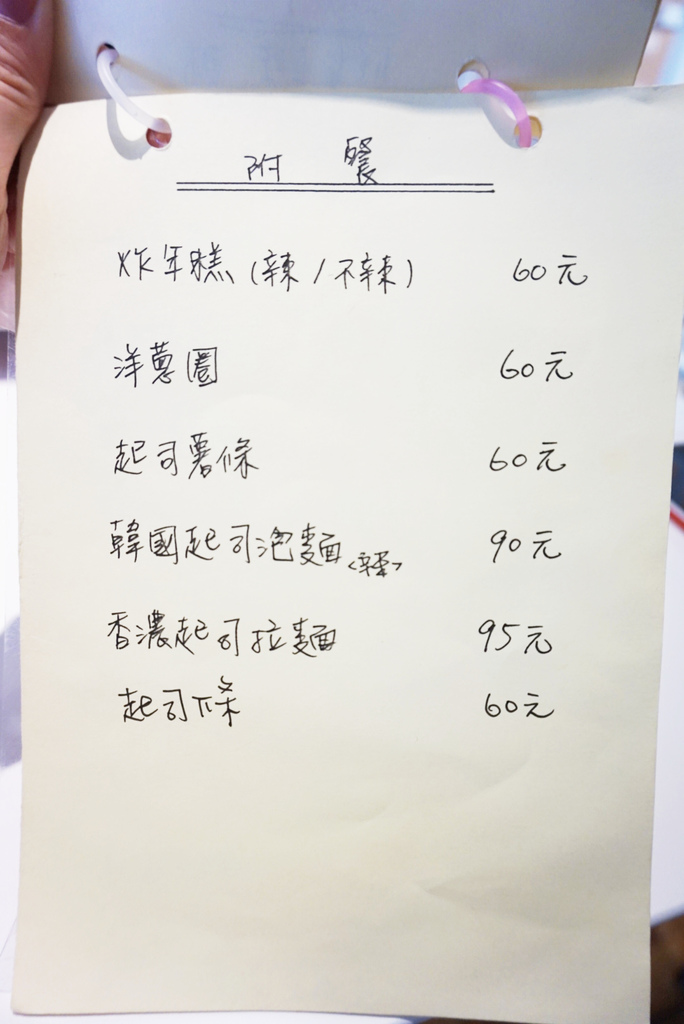 附 餐
炸年糕(辣/不辣) 60元
洋蔥圈 60元
起司薯條 60元
韓國起司泡麵<辣> 90元
香濃起司拉麵 95元
起司條 60元